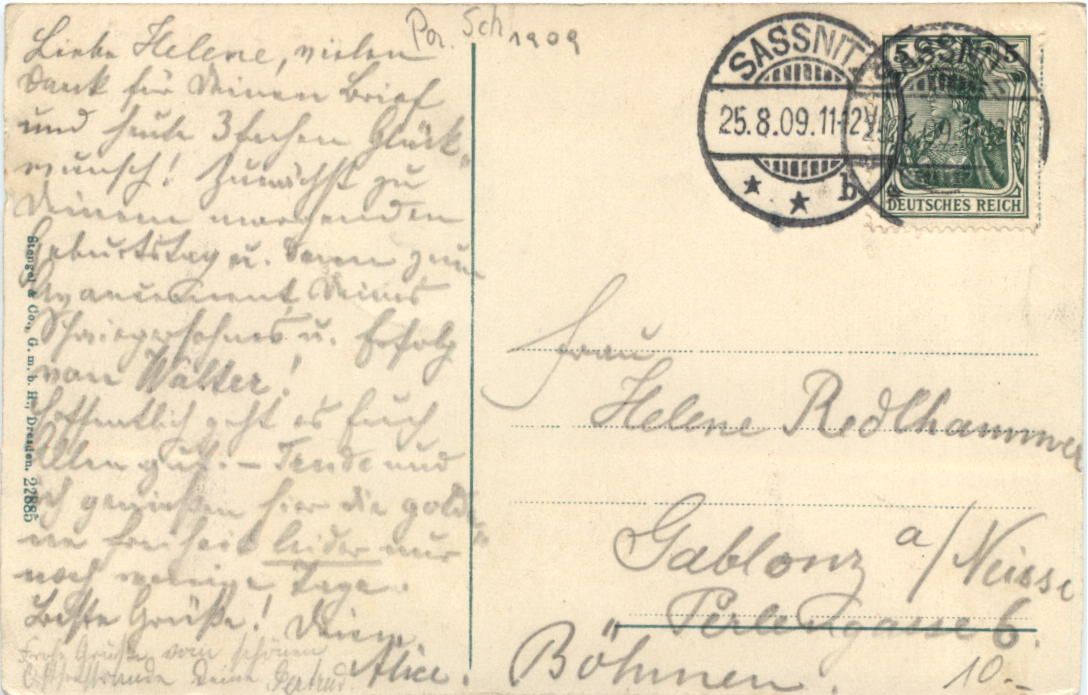 Por. Sch 1909
Liebe Helene, vielen
Dank für Deinen Brief
und heute 3fachen Glück-
wunsch! Zunächst zu
Deinem morgenden
Geburtstag u. dann zum
Avancement Deines
Schwiegersohnes u. Erfolg
von Walter!
Hoffentlich geht es Euch
Allen gut. – und
ich genießen hier die golde-
ne Freiheit leider nur
noch wenige Tage.
Beste Grüße! Deine
Alice.
Frohe Grüße vom schönen
Ostseestrande Deine Gertrud.
Stengel & Co., G. m. b. H., Dresden. 22885
SASSNITZ
25.8.09.11-12V.
b
SASSNITZ
5 5
DEUTSCHES REICH
Frau
Helene Redlhammer
Gablonz a/Neisse
Perlengasse 6.
Böhmen.
10.-